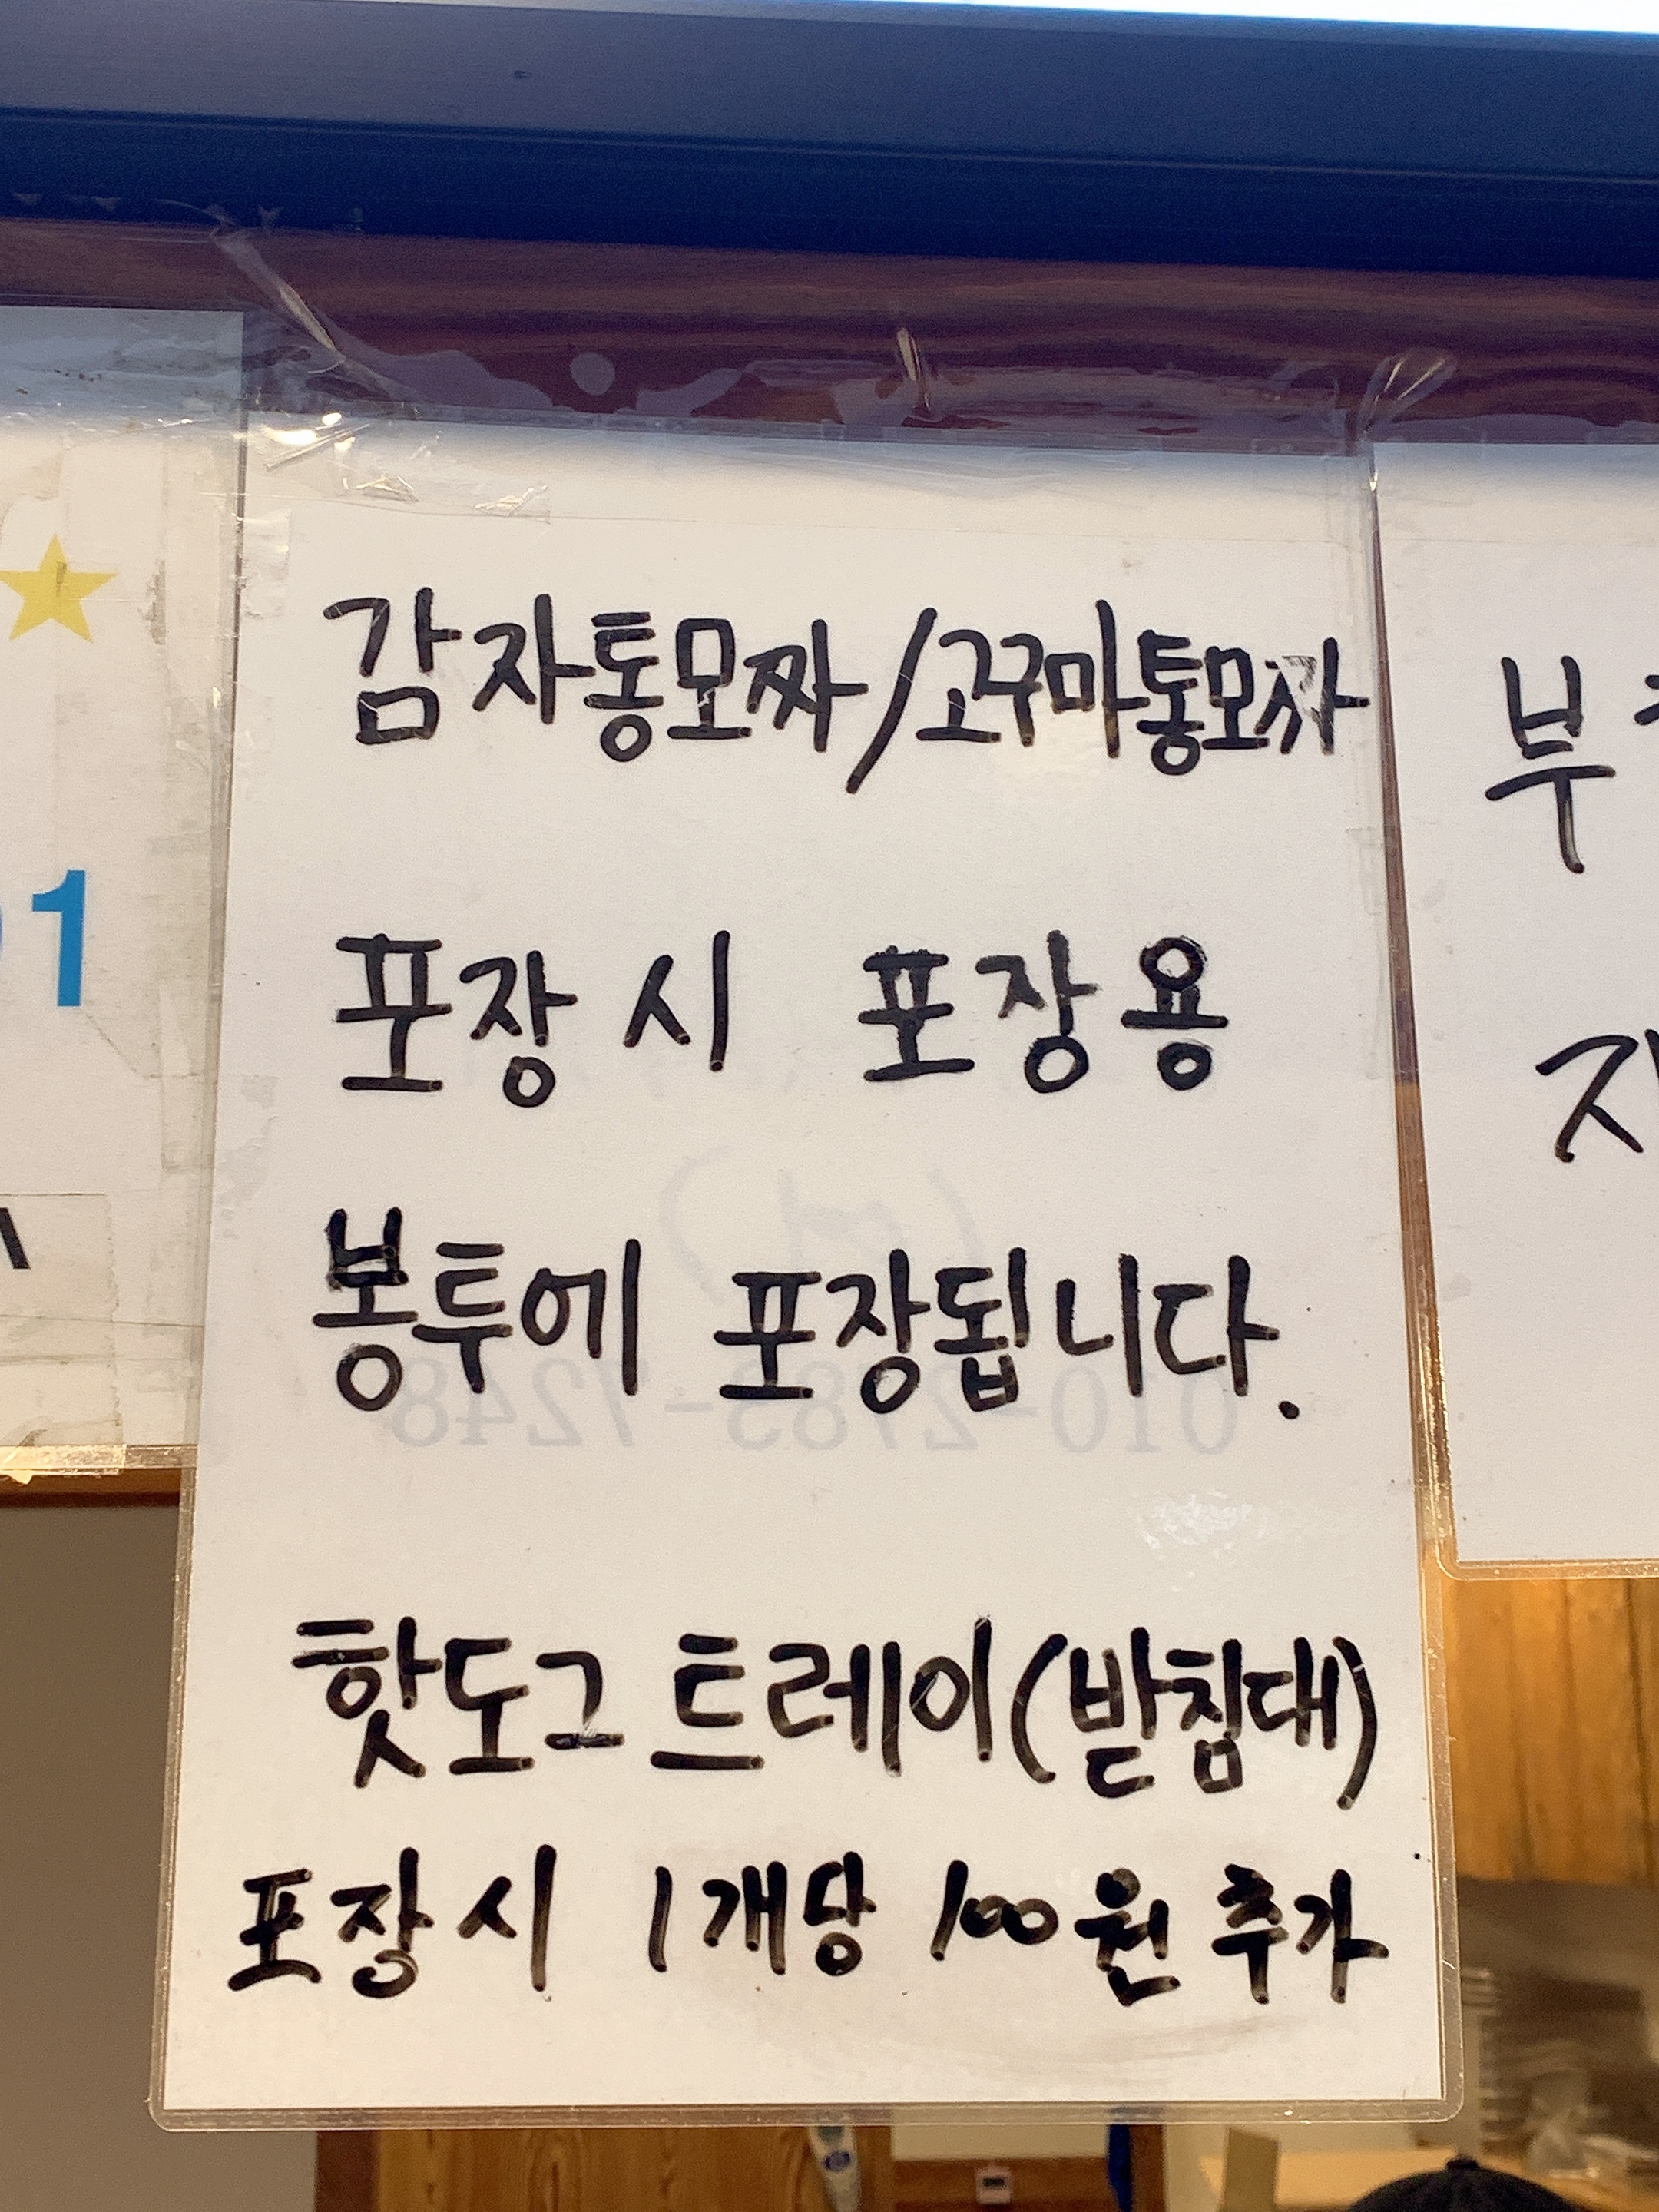 감자통모짜/고구마통모짜
포장시 포장용
봉투에 포장됩니다.
핫도그 트레이(받침대)
포장시 1개당 100원 추가
1
부